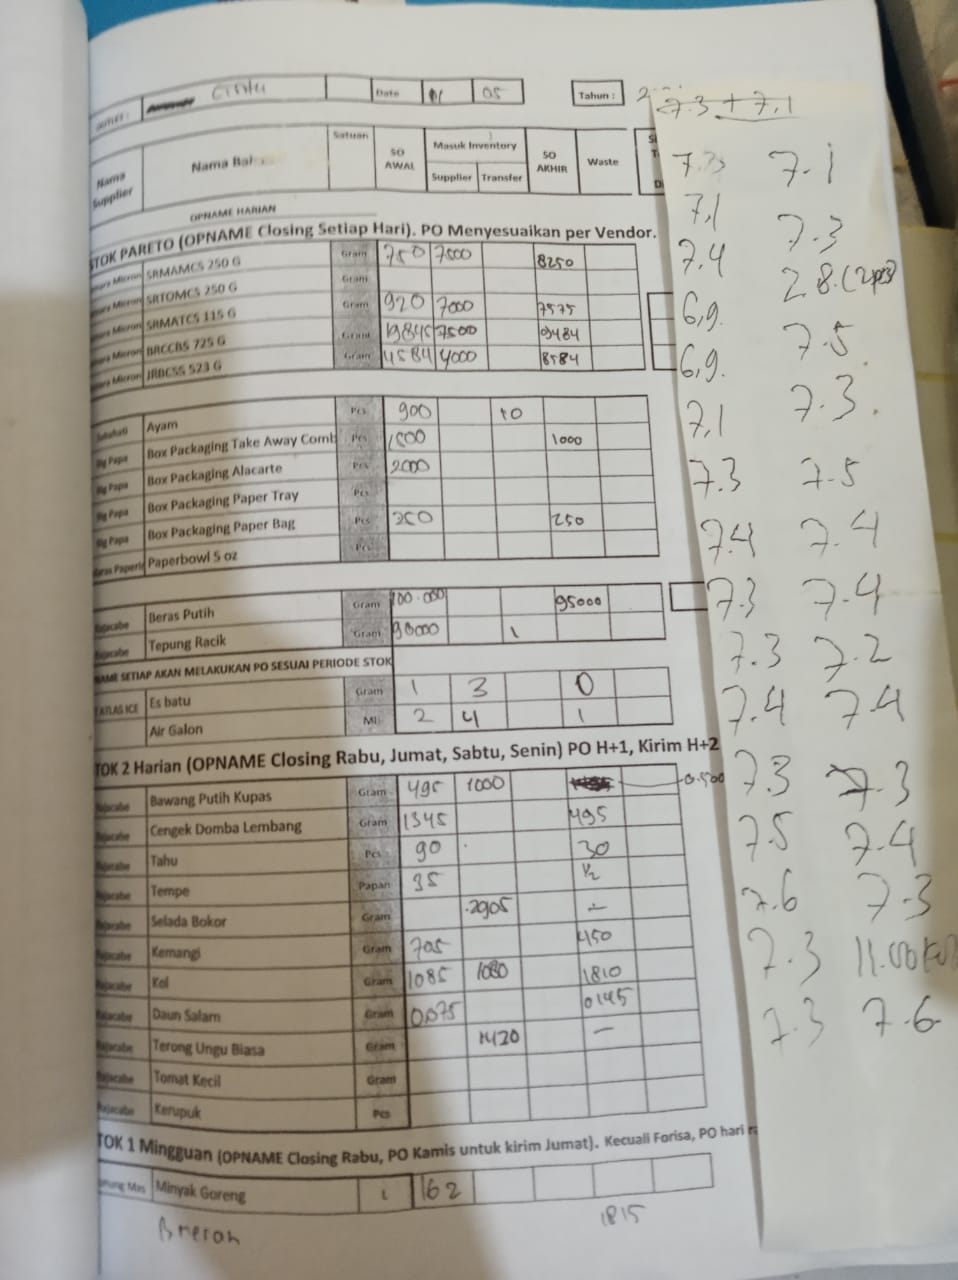 Date 01 05 Tahun :
Nama Supplier Satuan SO AWAL Masuk Inventory Supplier Transfer SO AKHIR Waste
OPNAME HARIAN
STOK PARETO (OPNAME Closing Setiap Hari). PO Menyesuaikan per Vendor.
SRMAMCS 250 G Gram 750 7500 8250
SRTOMCS 250 G Gram
SRMATCS 115 G Gram 920 7000 7575
BRCCBS 725 G Gram 7500 9484
JRBCSS 523 G Gram 4584 4000 8584
Ayam Pcs 900 10
Big Papa Box Packaging Take Away Comb Pcs 1000 1000
Big Papa Box Packaging Alacarte Pcs 2000
Big Papa Box Packaging Paper Tray Pcs
Big Papa Box Packaging Paper Bag Pcs 250 250
Paperbowl 5 oz Pcs
Rajacabe Beras Putih Gram 100.000 95000
Rajacabe Tepung Racik Gram 90000 1
NAME SETIAP AKAN MELAKUKAN PO SESUAI PERIODE STOK
ATLAS ICE Es batu Gram 1 3 0
Air Galon Ml 2 4 1
TOK 2 Harian (OPNAME Closing Rabu, Jumat, Sabtu, Senin) PO H+1, Kirim H+2
Rajacabe Bawang Putih Kupas Gram 495 1000 0.500
Rajacabe Cengek Domba Lembang Gram 1345 495
Rajacabe Tahu Pcs 90 30
Rajacabe Tempe Papan 35 1/2
Rajacabe Selada Bokor Gram 2905
Rajacabe Kemangi Gram 705 450
Rajacabe Kol Gram 1085 1080 1810
Rajacabe Daun Salam Gram 0,075 0145
Rajacabe Terong Ungu Biasa Gram 1420 —
Rajacabe Tomat Kecil Gram
Rajacabe Kerupuk Pcs
TOK 1 Mingguan (OPNAME Closing Rabu, PO Kamis untuk kirim Jumat). Kecuali Forisa, PO hari
Minyak Goreng L 162
1815
7.3 + 7.1
7.3 7.1
7,1 7.3
7.4 2.8.
6,9. 7.5
6,9. 7.3.
7,1 7.5
7.3 7.4
7.4 7.4
7.3 7.2
7.3 7.4
7.4 7.3
7.3 7.4
7.5 7.3
7.6
7.3 7.6
7.3